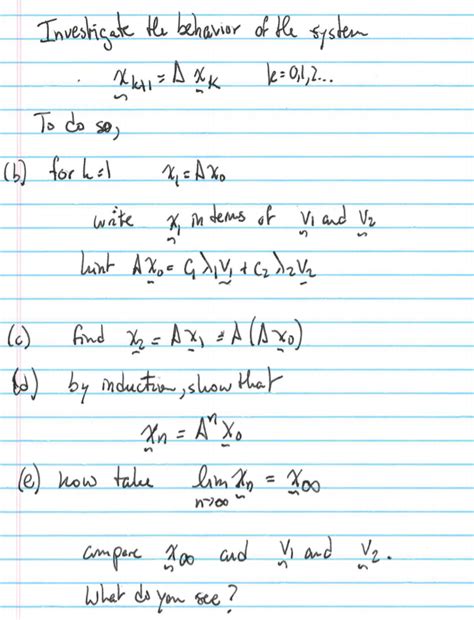 Investigate the behavior of the system
x_{k+1} = A x_k k=0,1,2...
To do so,
(b) for k=1 x_1 = A x_0
write x_1 in terms of v_1 and v_2
hint A x_0 = C_1 λ_1 v_1 + C_2 λ_2 v_2
(c) find x_2 = A x_1 = A (A x_0)
(d) by induction, show that
x_n = A^n x_0
(e) now take lim_{n→∞} x_n = x_∞
compare x_∞ and v_1 and v_2.
What do you see?